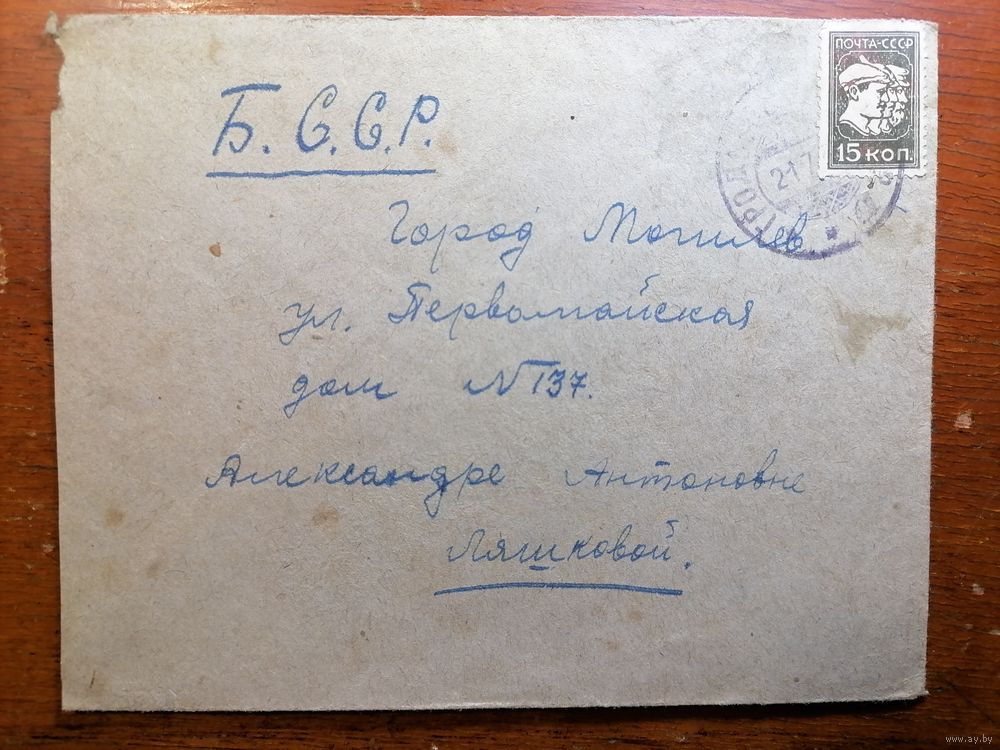 ПОЧТА-СССР
15 КОП.
Б.С.С.Р.
21 7
Город Могилев.
ул. Первомайская
дом N 137.
Александре Антоновне
Ляшковой.
www.ay.by